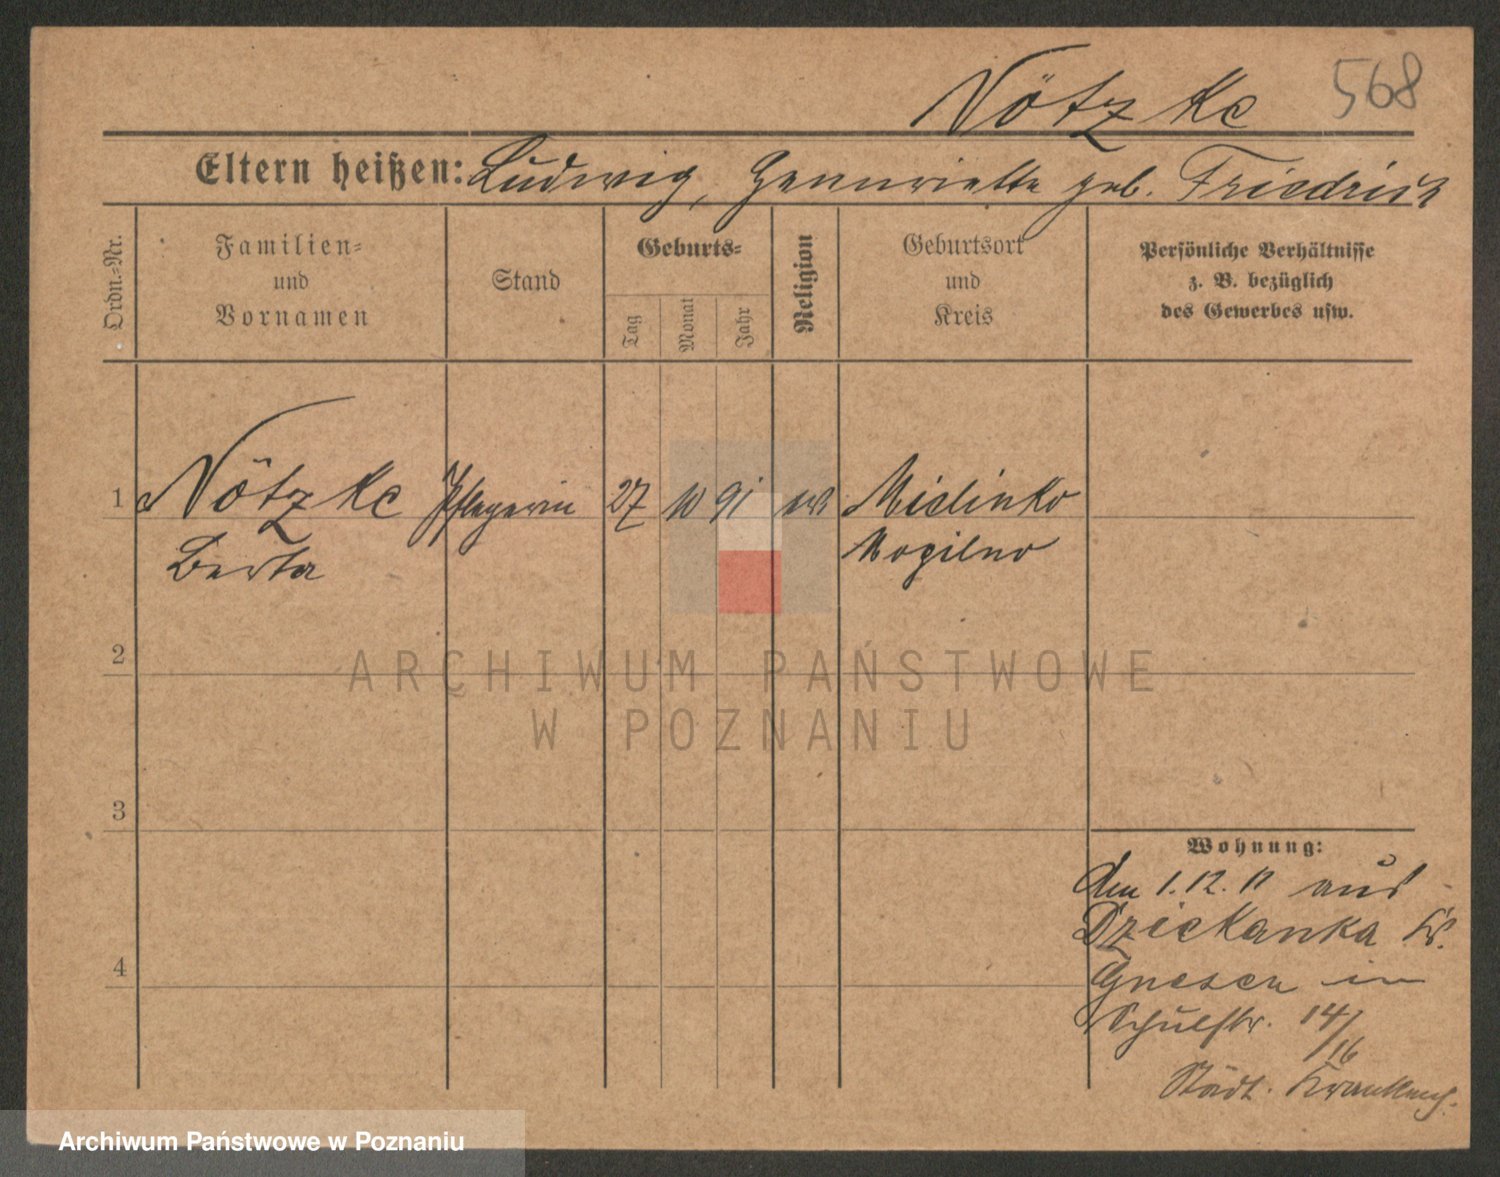 Nötzke 568
Eltern heißen: Ludwig, Hennriette geb. Friedrich
Ordn.-Nr.
Familien-
und
Vornamen
Stand
Geburts-
Tag
Monat
Jahr
Religion
Geburtsort
und
Kreis
Persönliche Verhältnisse
z. B. bezüglich
des Gewerbes usw.
1 Nötzke Pflegerin 27 10 91 ev. Mielinko
Berta Mogilno
2
ARCHIWUM PAŃSTWOWE
W POZNANIU
3
Wohnung:
Den 1.12.11 aus
Dziekanka Kr.
4
Gnesen in
Schulstr. 14/16
Städt. Krankenh.
Archiwum Państwowe w Poznaniu